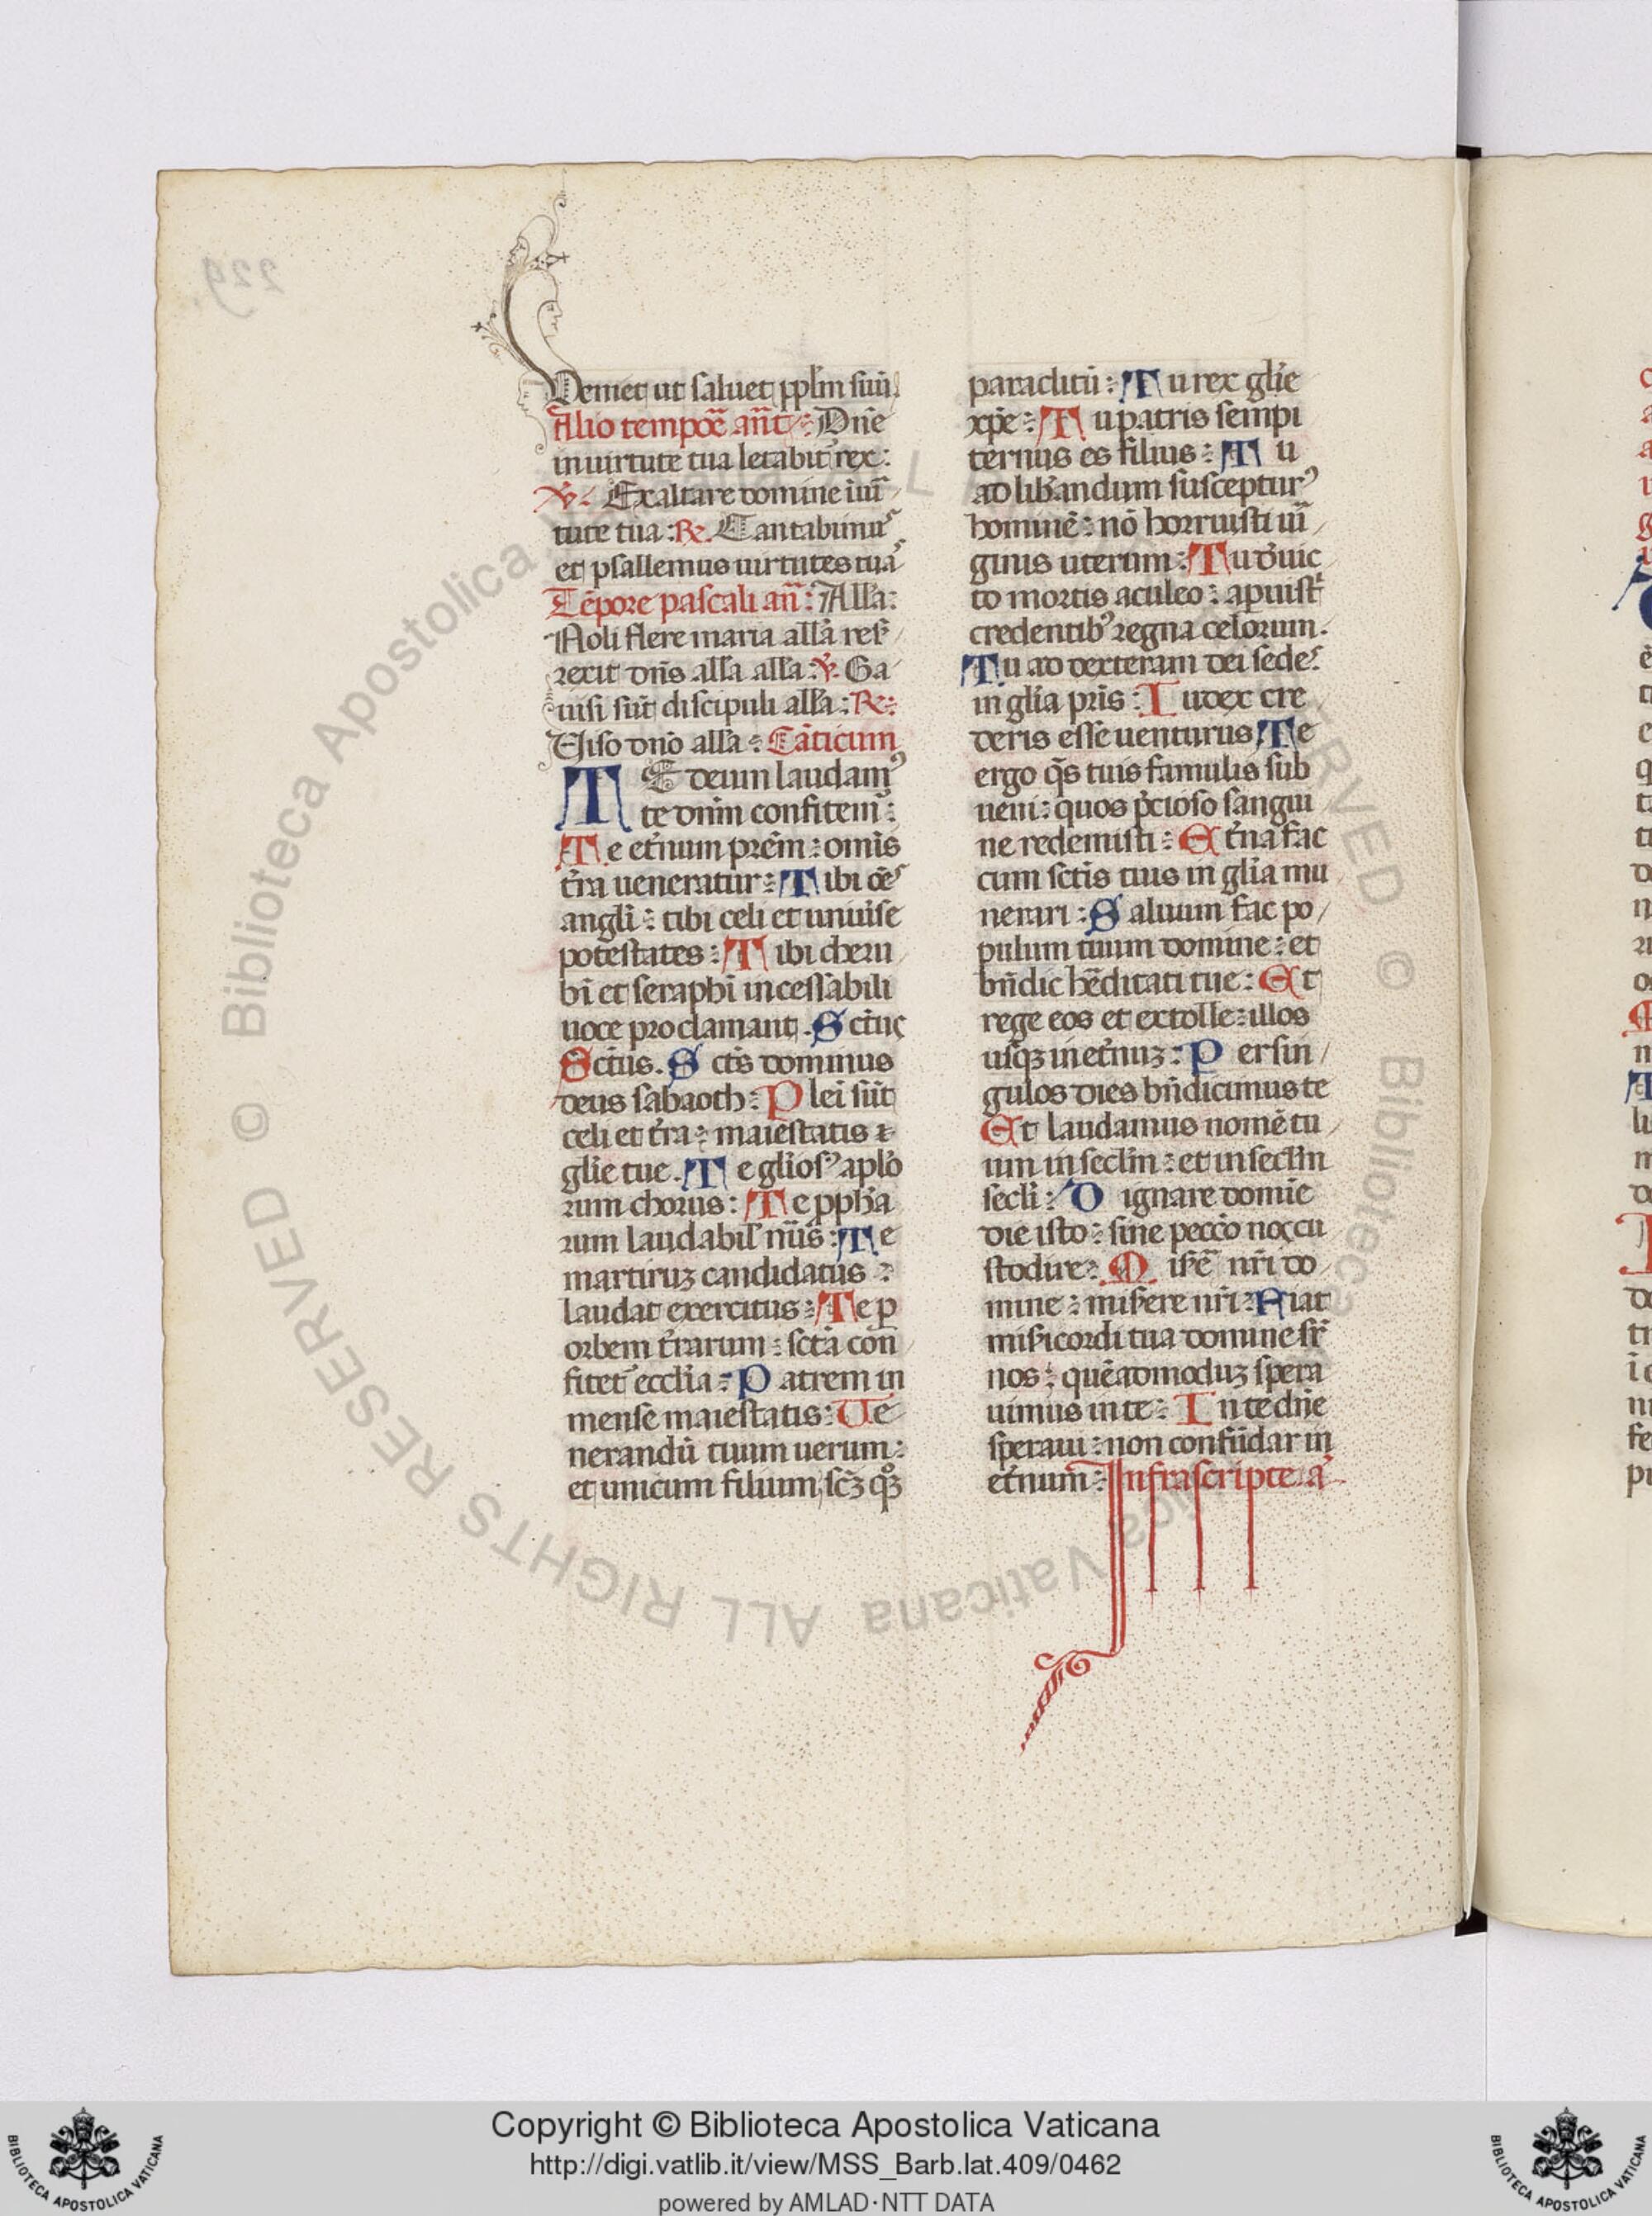 Veniet ut saluet pplm suū
Alio tempor̄ ant̄. Dn̄e
in uirtute tua letabit᷑ rex:
℣. Exaltare domine ī uir̄
tute tua: ℟. Cantabimus
et psallemus uirtutes tuas
Tēpore pascali an̄: Alla:
Noli flere maria alla res᷑
rexit dns̄ alla alla: ℣. Ga
uisi sūt discipuli alla: ℟:
Uiso dn̄o alla: Cāticum
TE deum laudamꝰ
te dnm̄ confitemꝰ:
Te et᷑num prēm: omīs
t᷑ra ueneratur: Tibi oēs
angli̅: tibi celi et uniūse
potestates: Tibi cheru
bī et seraphī incessabili
uoce proclamant. Sctūs
Sctūs. Sctūs dominus
deus sabaoth: Pleī sūt
celi et t᷑ra: maiestatis ⁊
gli̅e tue. Te gli̅osꝰ aplō
rum chorus: Te ppha̅
rum laudabil᷑ nūs: Te
martiruꝫ candidatus:
laudat exercitus: Te ꝑ
orbem t᷑rarum: sctā con
fitet᷑ eccli̅a: Patrem in
mense maiestatis: Ue
nerandū tuum uerum:
et unicum filium, scꝫ qͦꝫ
paraclitū: Tu rex gli̅e
xp̄e: Tu patris sempi
ternus es filius: Tu
ad lib᷑andum suscepturꝰ
hominē: nō horruisti uir̄
ginis uterum: Tu d᷑uic
to mortis aculeo: apuisti
credentibꝰ regna celorum.
Tu ad dexteram dei sedes
in gli̅a pris̄: Iudex cre
deris esse uenturus Te
ergo qs̄ tuis famulis sub
ueni: quos p̄cioso sangui
ne redemisti: Et᷑na fac
cum sctīs tuis in gli̅a mu
nerari: Saluum fac po
pulum tuum domine: et
bn̄dic hēditati tue: Et
rege eos et extolle: illos
usqꝫ in et᷑nuꝫ: Per sin
gulos dies bn̄dicimus te
Et laudamus nomē tu
um in seclm̄: et in seclm̄
secli̅: Dignare domīe
die isto: sine peccō nos cu
stodire: Mis᷑e᷑ nr̄i do
mine: mis᷑ere nr̄i: Fiat
mis᷑icordi tua domine sr᷑
nos: quēadmoduꝫ spera
uimus in te: In te dn̄e
speraui: non confūdar in
et᷑num: Infrascripte a᷑
229
© Biblioteca Apostolica Vaticana ALL RIGHTS RESERVED
© Biblioteca Apostolica Vaticana ALL RIGHTS RESERVED
Copyright © Biblioteca Apostolica Vaticana
http://digi.vatlib.it/view/MSS_Barb.lat.409/0462
powered by AMLAD·NTT DATA
BIBLIOTECA APOSTOLICA VATICANA
BIBLIOTECA APOSTOLICA VATICANA